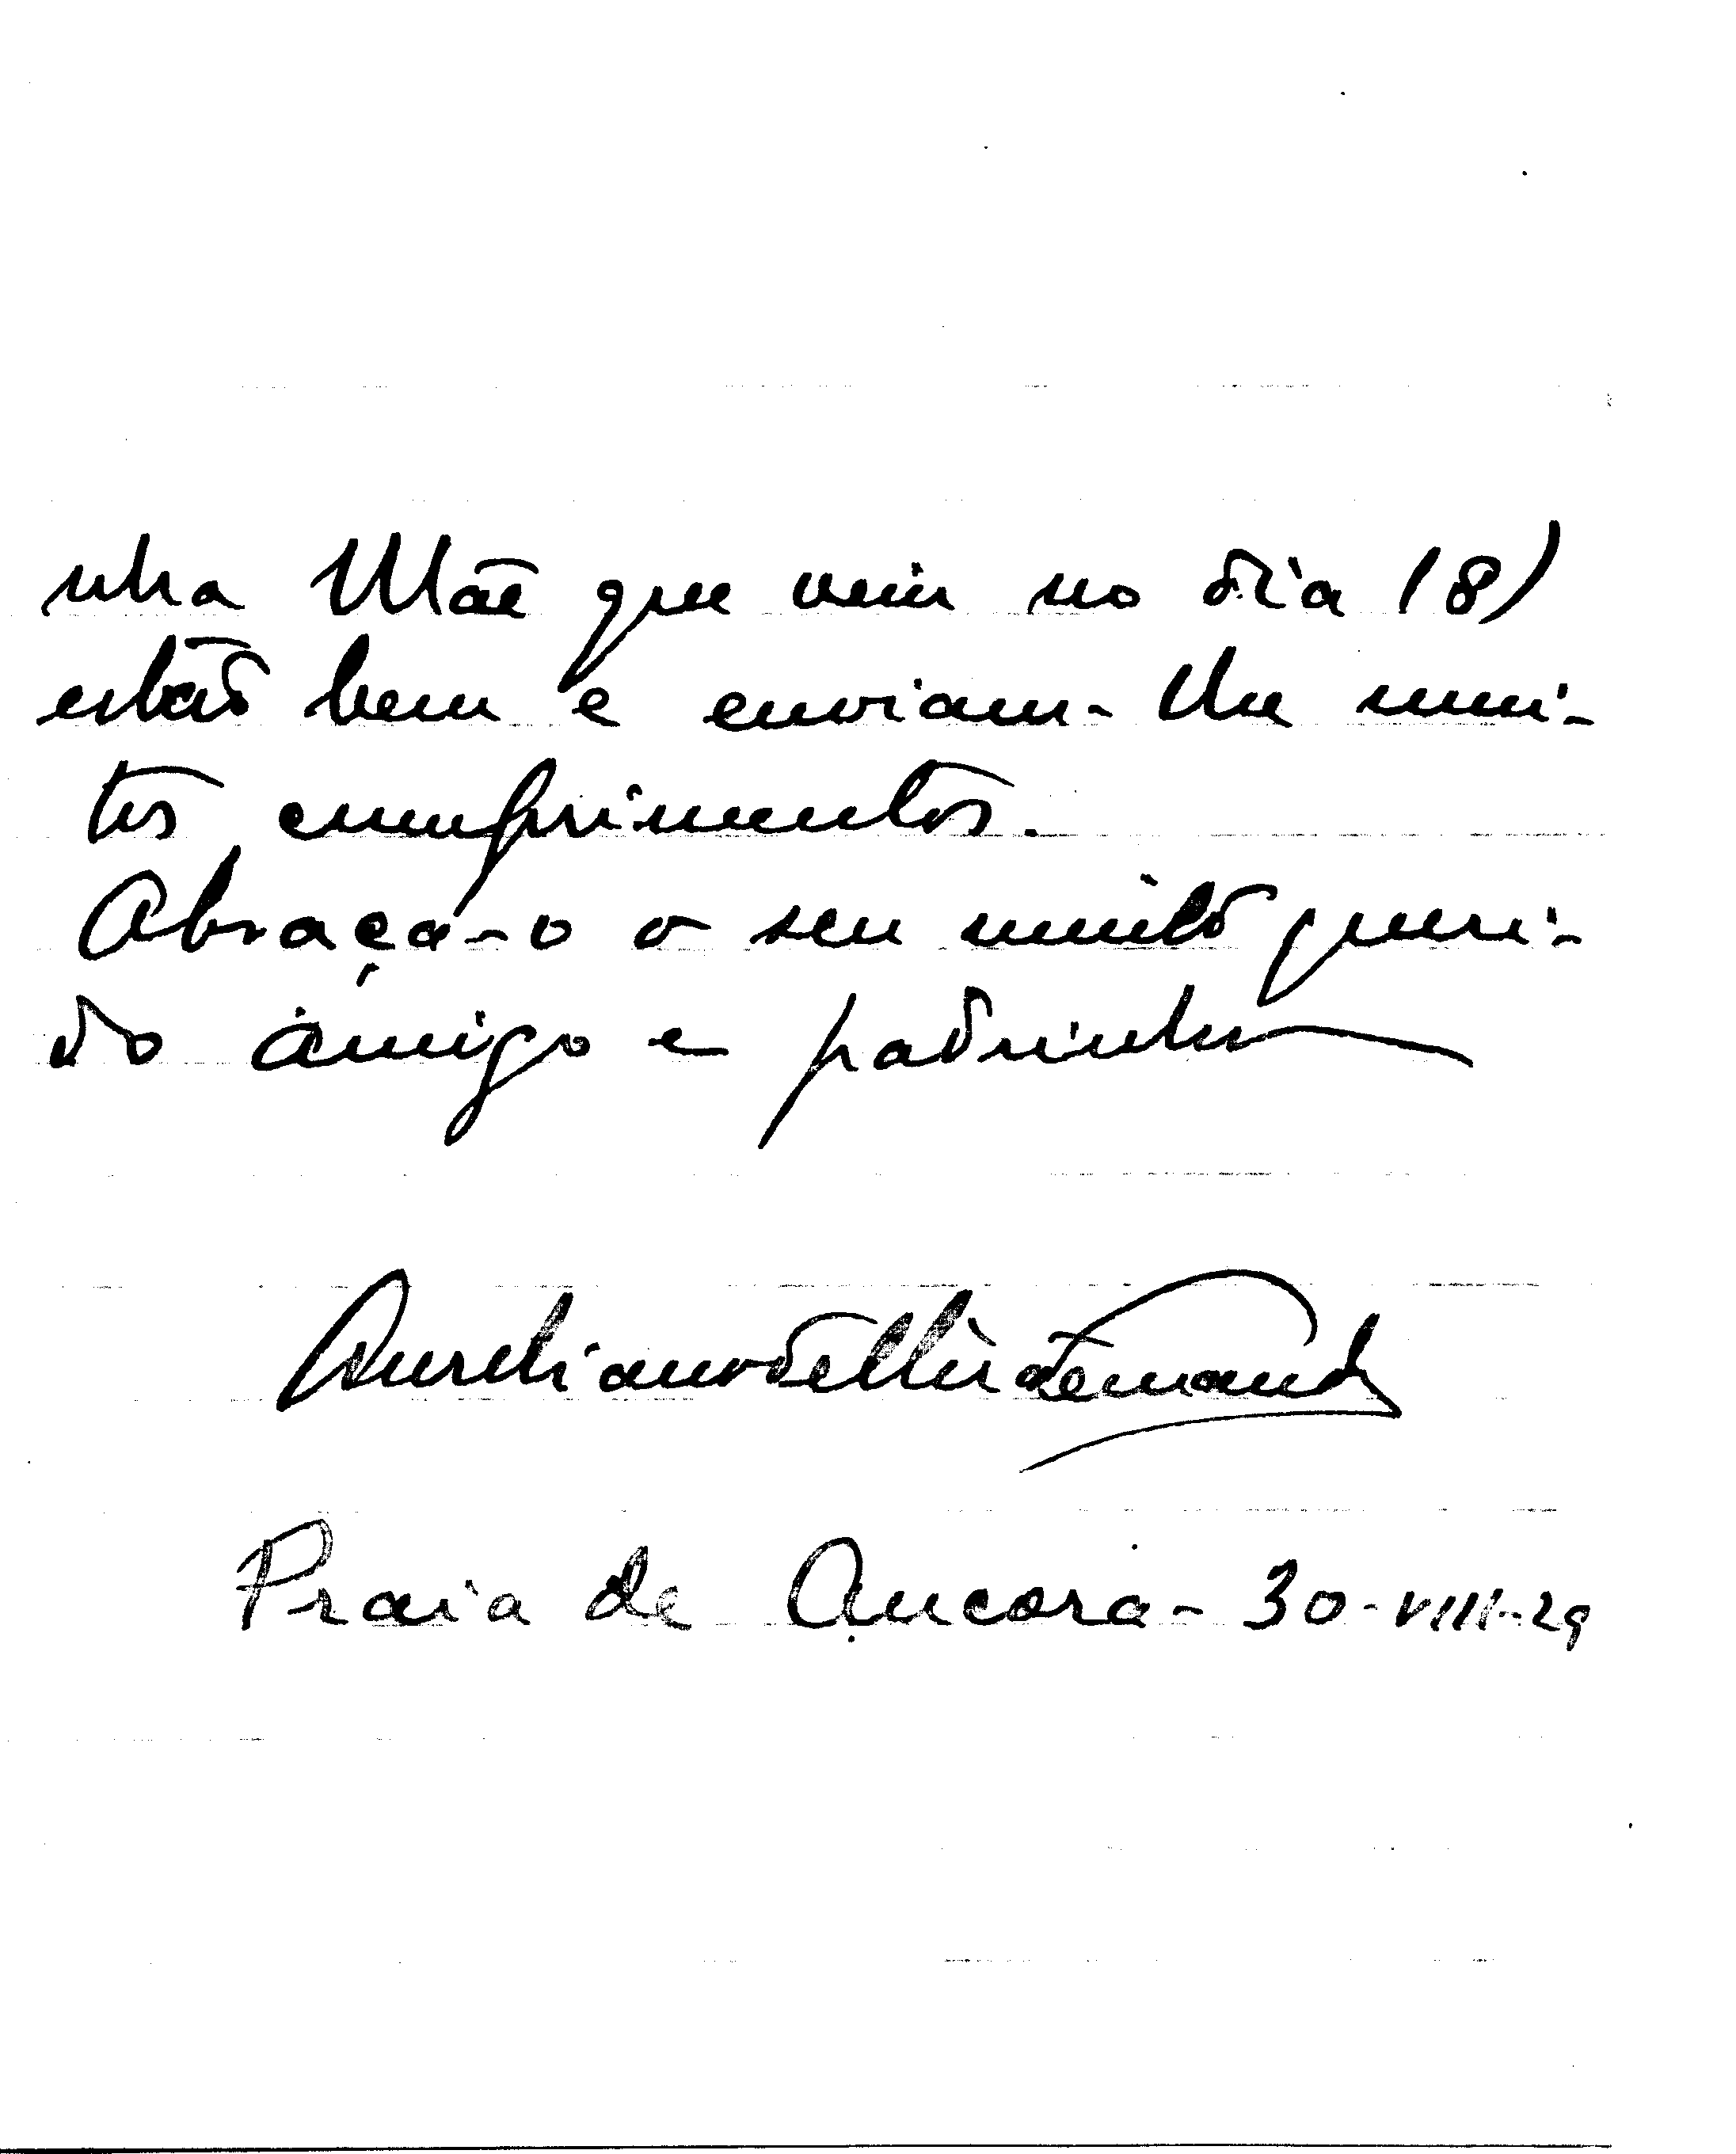 nha Mãe que veiu no dia 18)
estão bem e enviam-lhe mui-
tos cumprimentos.
Abraça-o o seu muito queri-
do amigo e padrinho
Aureliano Fernand
Praia de Ancora - 30-VIII-29